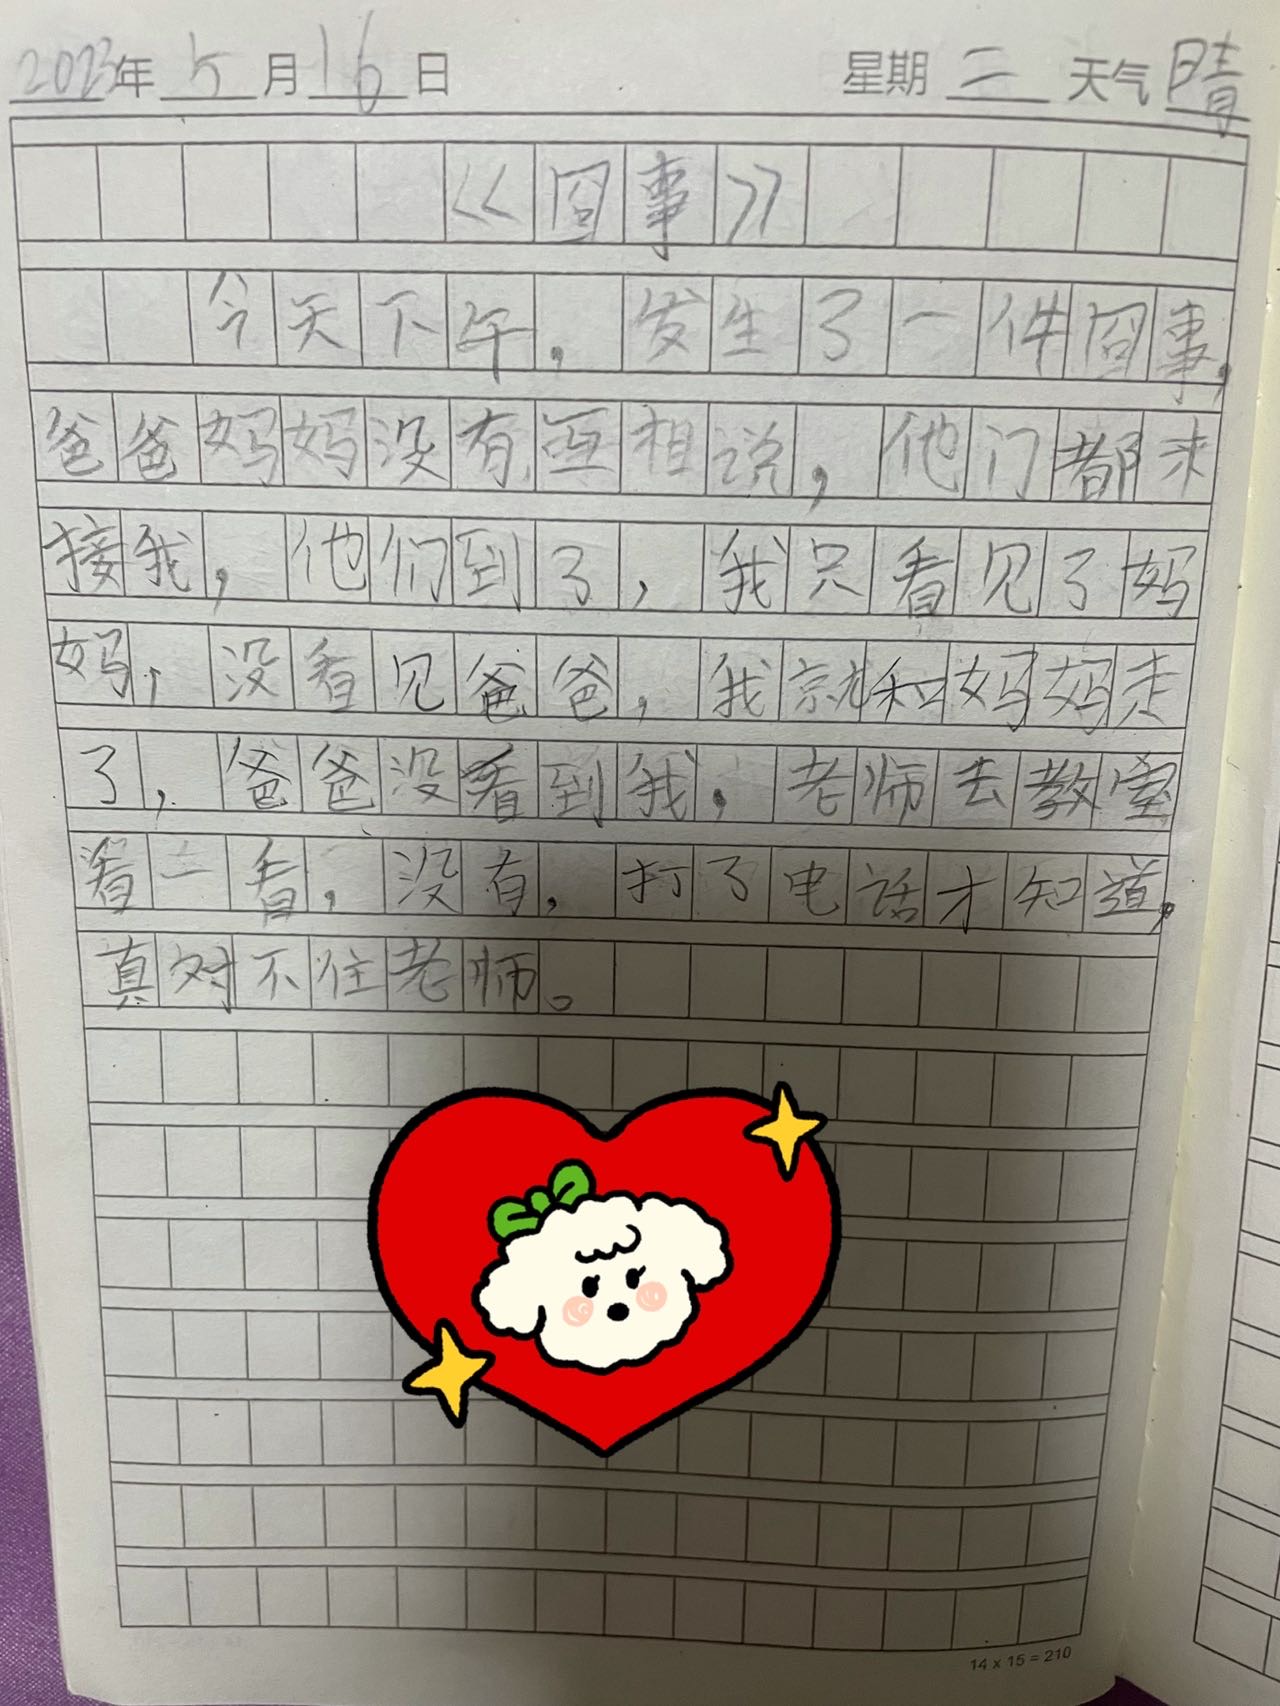 2023年5月16日 星期二 天气晴
《囧事》
今天下午，发生了一件囧事，
爸爸妈妈没有互相说，他门都来
接我，他们到了，我只看见了妈
妈，没看见爸爸，我就和妈妈走
了，爸爸没看到我，老师去教室
看一看，没有，打了电话才知道，
真对不住老师。
14 x 15 = 210